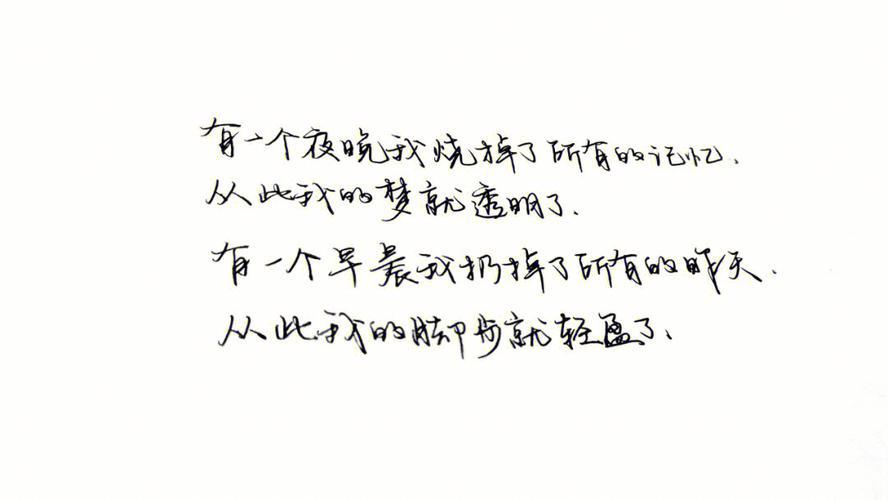 有一个夜晚我烧掉了所有的记忆.
从此我的梦就透明了.
有一个早晨我扔掉了所有的昨天.
从此我的脚步就轻盈了.